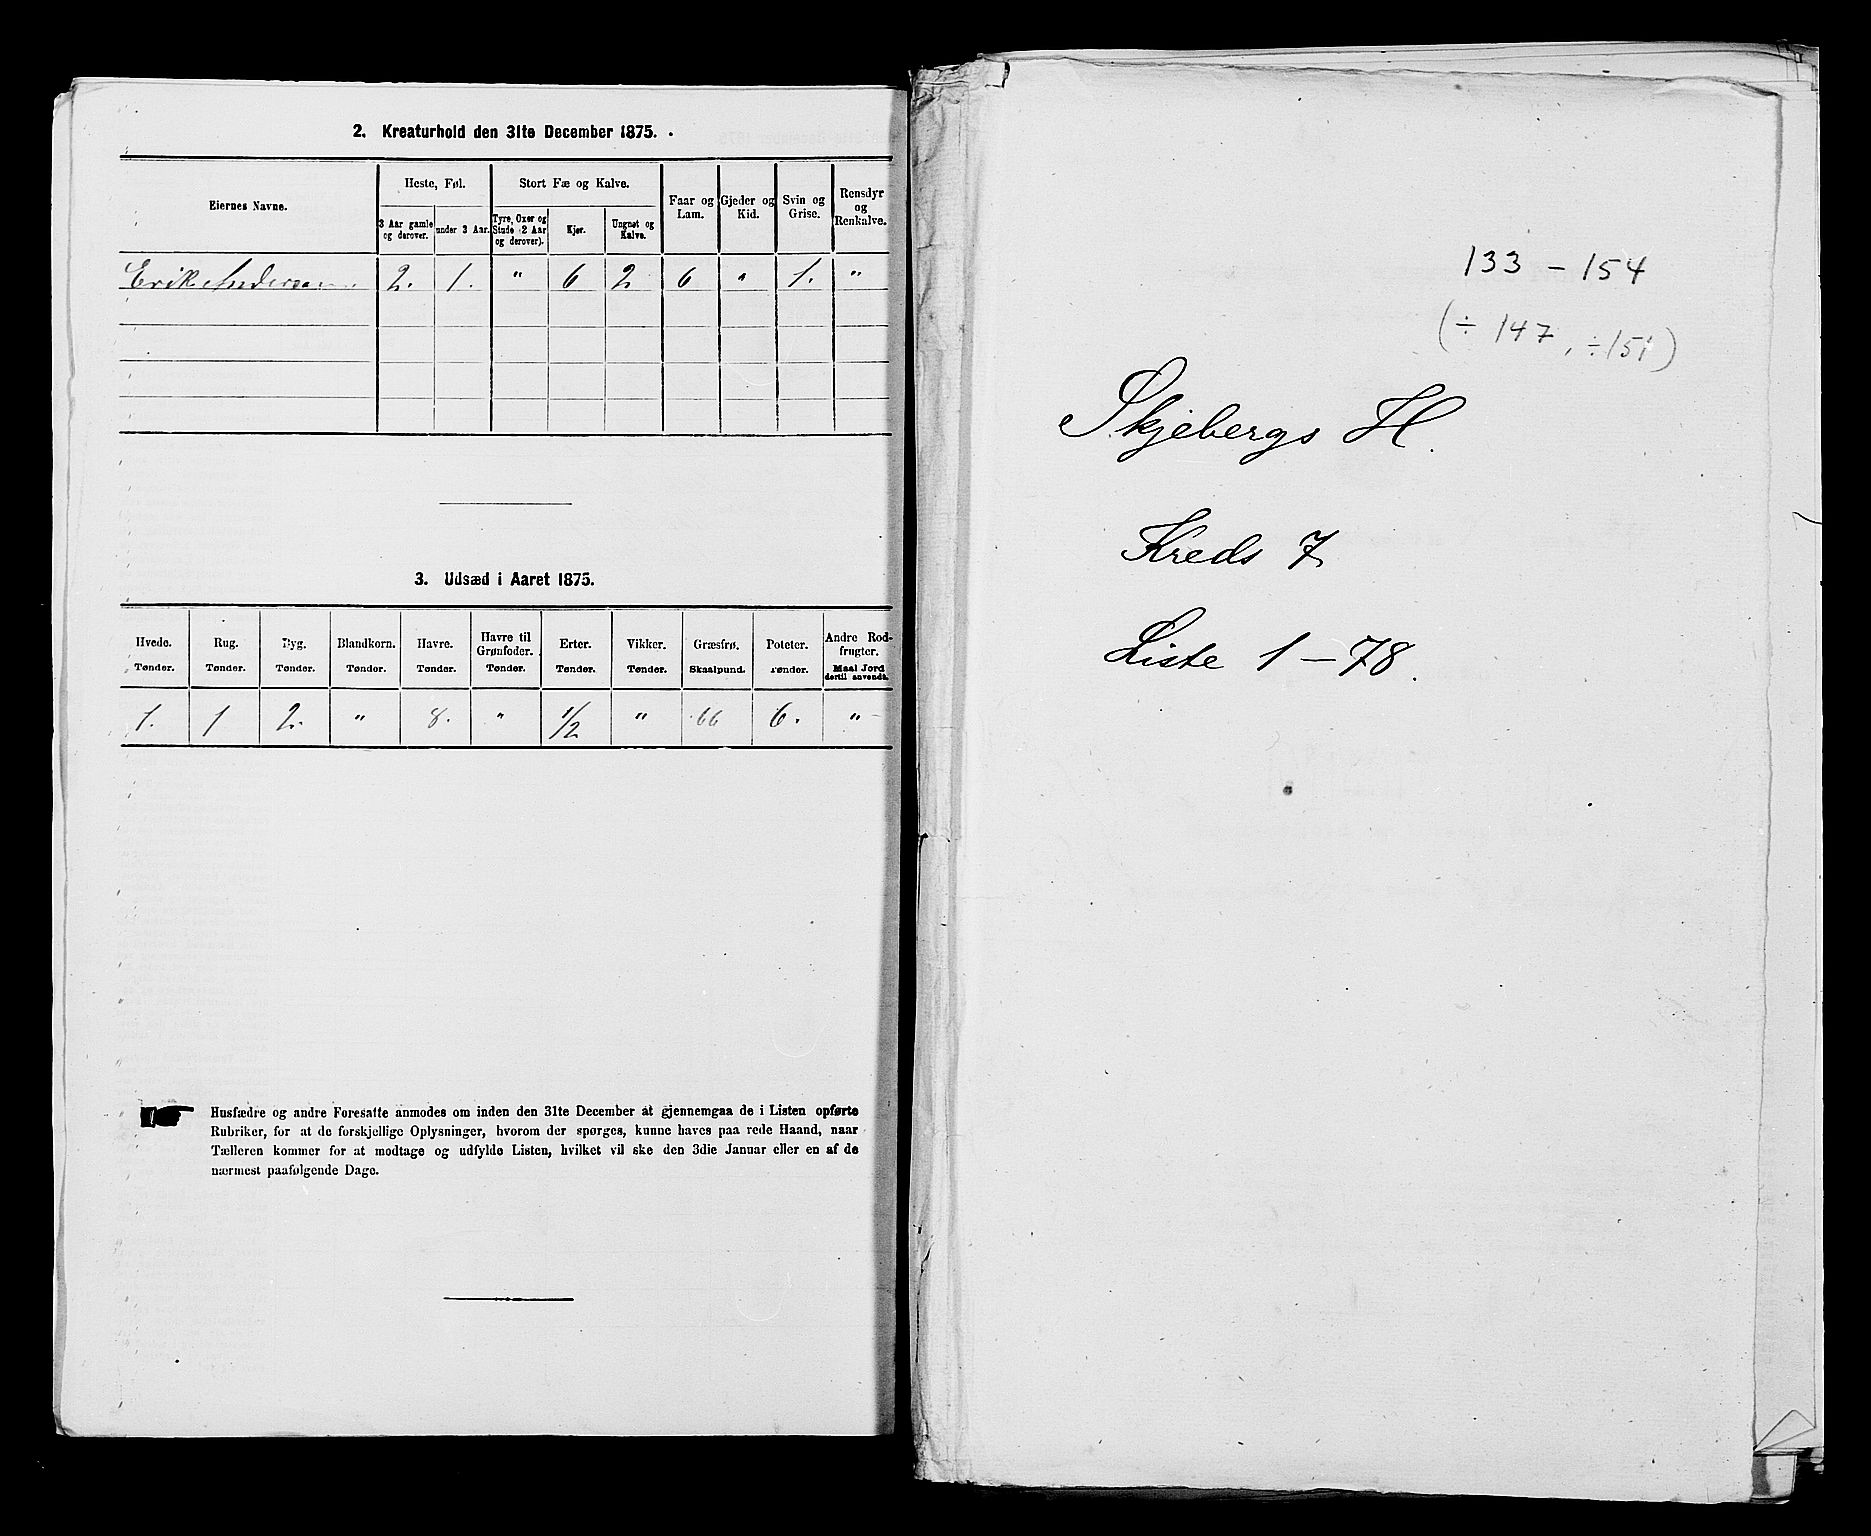 2. Kreaturhold den 31te December 1875.
Eiernes Navne.
Heste, Føl.
Stort Fæ og Kalve.
Faar og Lam.
Gjeder og Kid.
Svin og Grise.
Rensdyr og Renkalve.
3 Aar gamle og derover.
under 3 Aar.
Tyre, Oxer og Stude (2 Aar og derover).
Kjør.
Ungnøt og Kalve.
Erik Andersen 2. 1. " 6 2 6 " 1. "
3. Udsæd i Aaret 1875.
Hvede. Rug. Byg. Blandkorn. Havre. Havre til Grønfoder. Erter. Vikker. Græsfrø. Poteter. Andre Rodfrugter.
Tønder. Tønder. Tønder. Tønder. Tønder. Tønder. Tønder. Tønder. Skaalpund. Tønder. Maal Jord dertil anvendt.
1. 1 2. " 8. " 1/2 " 66 6. "
Husfædre og andre Foresatte anmodes om inden den 31te December at gjennemgaa de i Listen opførte
Rubriker, for at de forskjellige Oplysninger, hvorom der spørges, kunne haves paa rede Haand, naar
Tælleren kommer for at modtage og udfylde Listen, hvilket vil ske den 3die Januar eller en af de
nærmest paafølgende Dage.
133 - 154
(÷ 147, ÷151)
Skjebergs H.
Kreds 7
Liste 1 - 78.